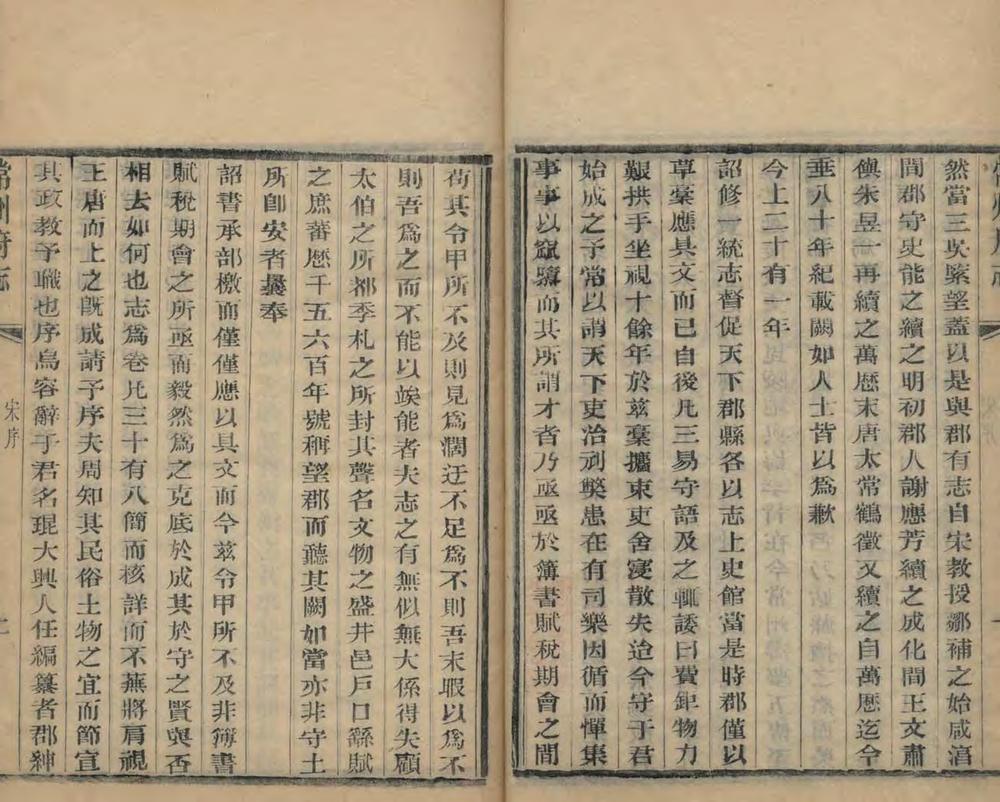 然當三吳緊望蓋以是與郡有志自宋教授鄒補之始咸淳
間郡守史能之續之明初郡人謝應芳續之成化間王文肅
㒽朱昱一再續之萬曆末唐太常鶴徵又續之自萬曆迄今
垂八十年紀載闕如人士皆以為歉
今上二十有一年
詔修一統志督促天下郡縣各以志上史館當是時郡僅以
草稾應具文而已自後凡三易守語及之輒諉曰費鉅物力
艱拱手坐視十餘年於茲稾攟束吏舍寖散失迨今守于君
始成之予常以謂天下吏治刓獘患在有司樂因循而憚集
事事以窳鹽而其所謂才者乃亟亟於簿書賦稅期會之間
苟其令甲所不及則見為濶迂不足為不則吾未暇以為不
則吾為之而不能以竢能者夫志之有無似無大係得失顧
太伯之所都季札之所封其聲名文物之盛井邑戶口繇賦
之庶蕃歷千五六百年號稱望郡而聽其闕如當亦非守土
所卽安者曩奉
詔書承部檄而僅僅應以具文而今茲令甲所不及非簿書
賦稅期會之所亟而毅然為之克底於成其於守之賢與否
相去如何也志為卷凡三十有八簡而核詳而不蕪將肩視
王唐而上之旣成請予序夫周知其民俗土物之宜而節宣
其政教予職也序烏容辭于君名琨大興人任編纂者郡紳
常州府志
宋序